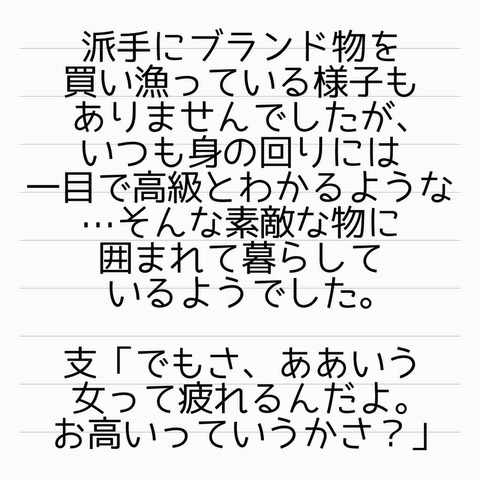 派手にブランド物を
買い漁っている様子も
ありませんでしたが、
いつも身の回りには
一目で高級とわかるような
…そんな素敵な物に
囲まれて暮らして
いるようでした。
支「でもさ、ああいう
女って疲れるんだよ。
お高いっていうかさ？」